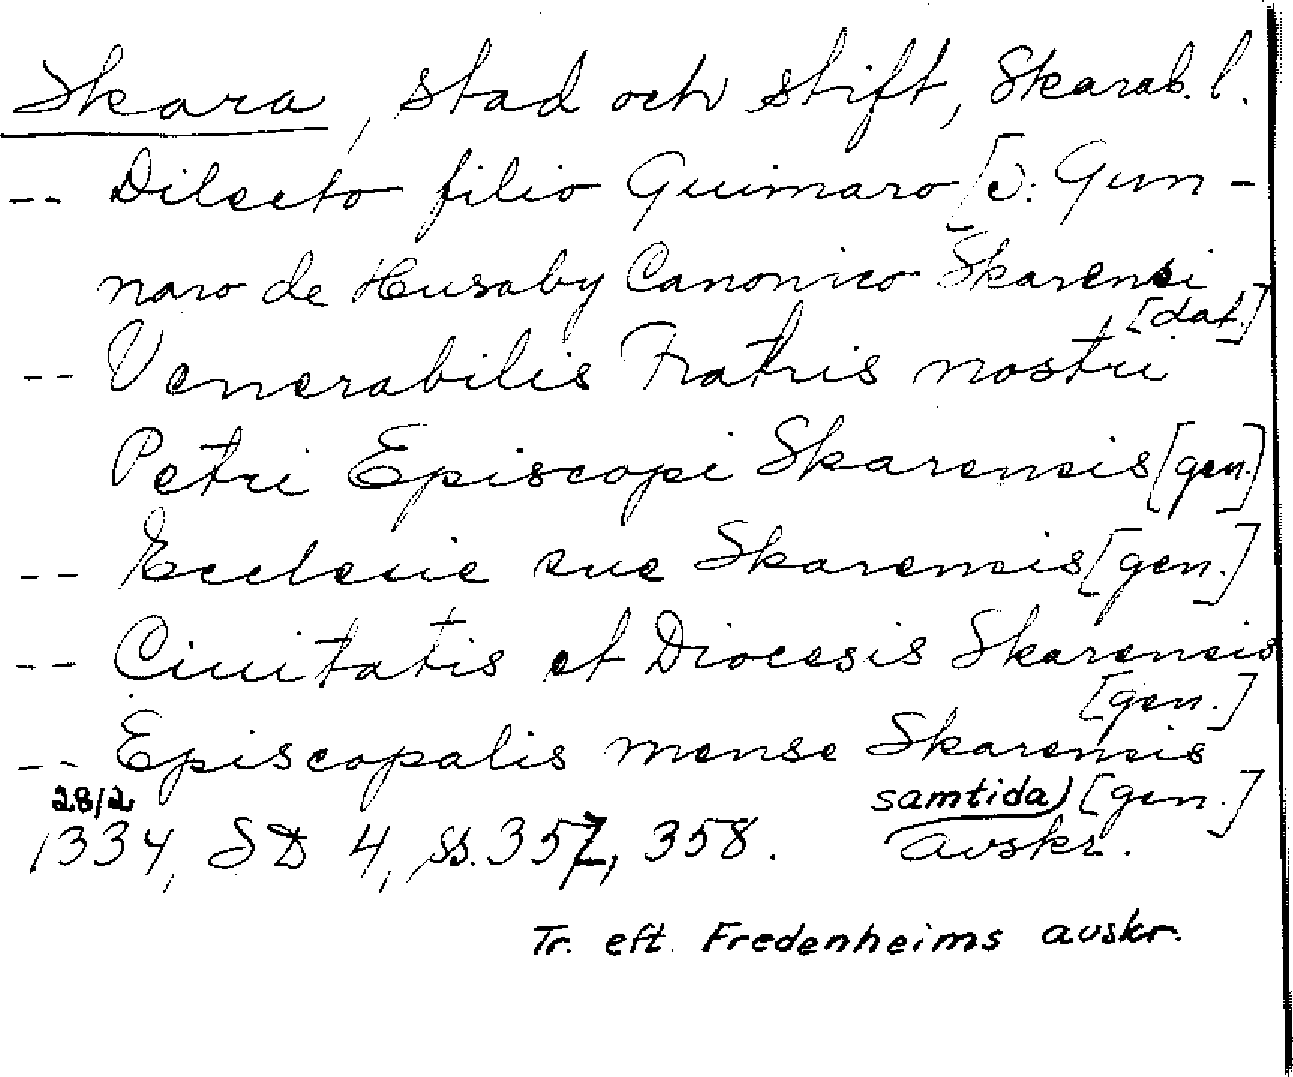 Skara, stad och stift, Skarab. l.
-- Dilecto filio Guimaro [ɔ: Gun-
naro de Husaby Canonico Skarensi
[dat.]
-- Venerabilis Fratris nostri
Petri Episcopi Skarensis [gen.]
-- Ecclesie sue Skarensis [gen.]
-- Ciuitatis et Diocesis Skarensis
[gen.]
-- Episcopalis mense Skarensis
28/2 samtida) [gen.]
1334, SD 4, ss. 357, 358. avskr.
Tr. eft. Fredenheims avskr.